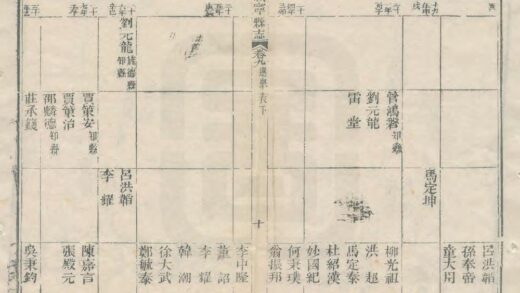 劉元龍
知縣
縣志
卷九
選舉表下
十
管鴻磐知縣
劉元龍
雷堂
賈策安知縣
賈策治
邵麟德知縣
莊承籛
馬定坤
呂洪韜
李燿
呂洪韜
孫奉帝
童大周
柳光祖
洪超
馬定泰
杜紹漢
姚國紀
何秉璞
翁振邦
李中隆
董詔
李燿
韓潮
徐大武
鄭敏泰
陳嘉言
張殿元
吳秉鈞